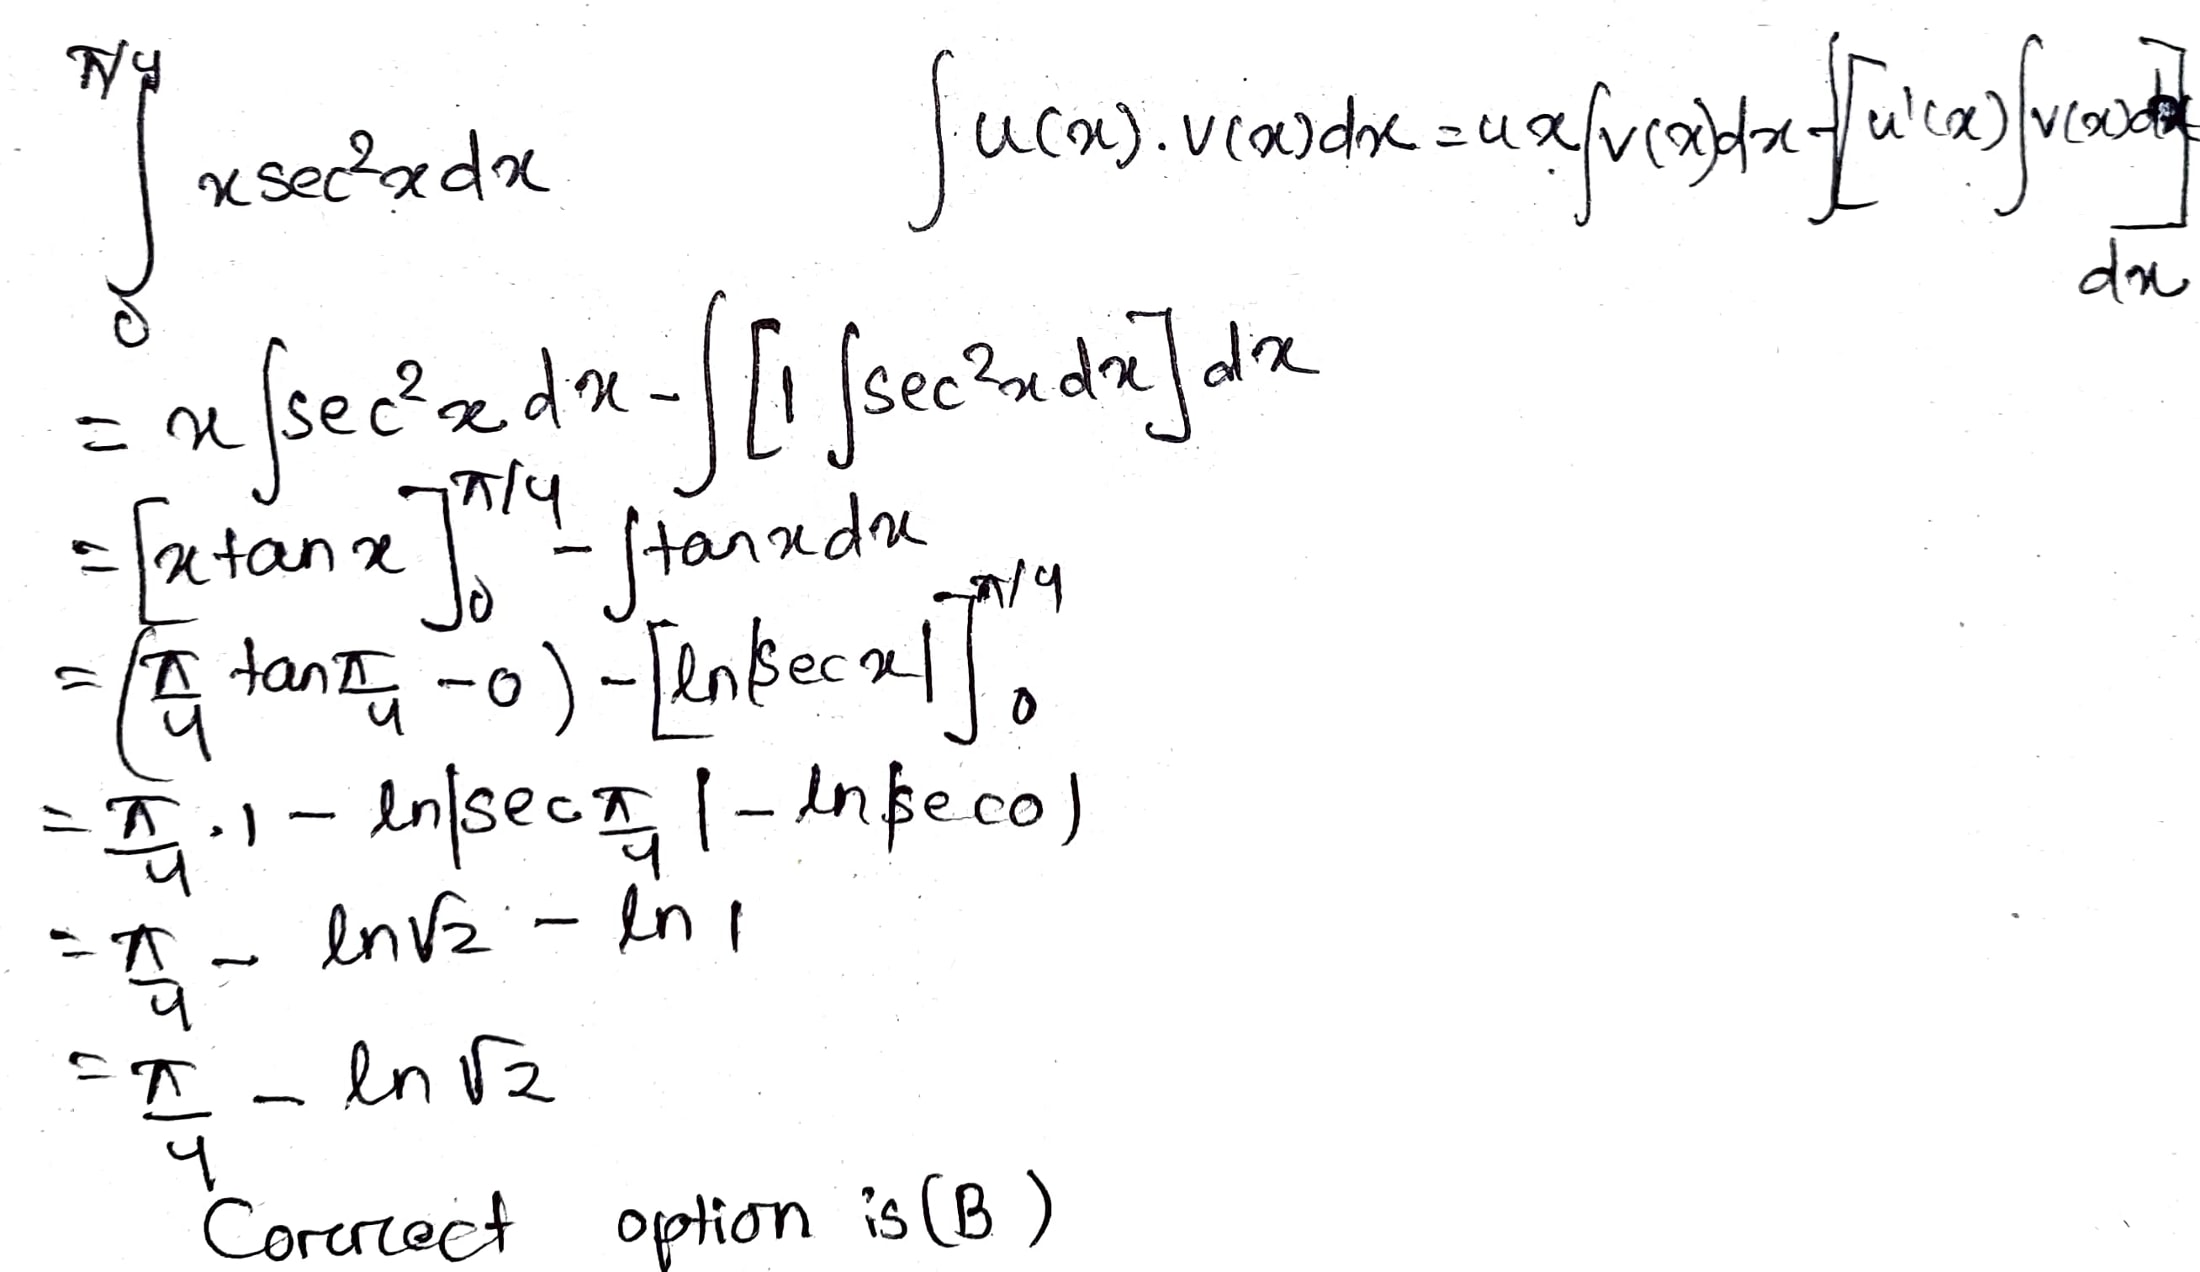 ∫₀^π/4 x sec²x dx
∫u(x).v(x)dx = ux∫v(x)dx - ∫[u'(x)∫v(x)dx] dx
= x∫sec²x dx - ∫[1∫sec²x dx] dx
= [x tan x]₀^π/4 - ∫tan x dx
= (π/4 tan π/4 - 0) - [ln|sec x|]₀^π/4
= π/4 . 1 - ln|sec π/4| - ln|sec 0|
= π/4 - ln√2 - ln 1
= π/4 - ln √2
Correct option is (B)